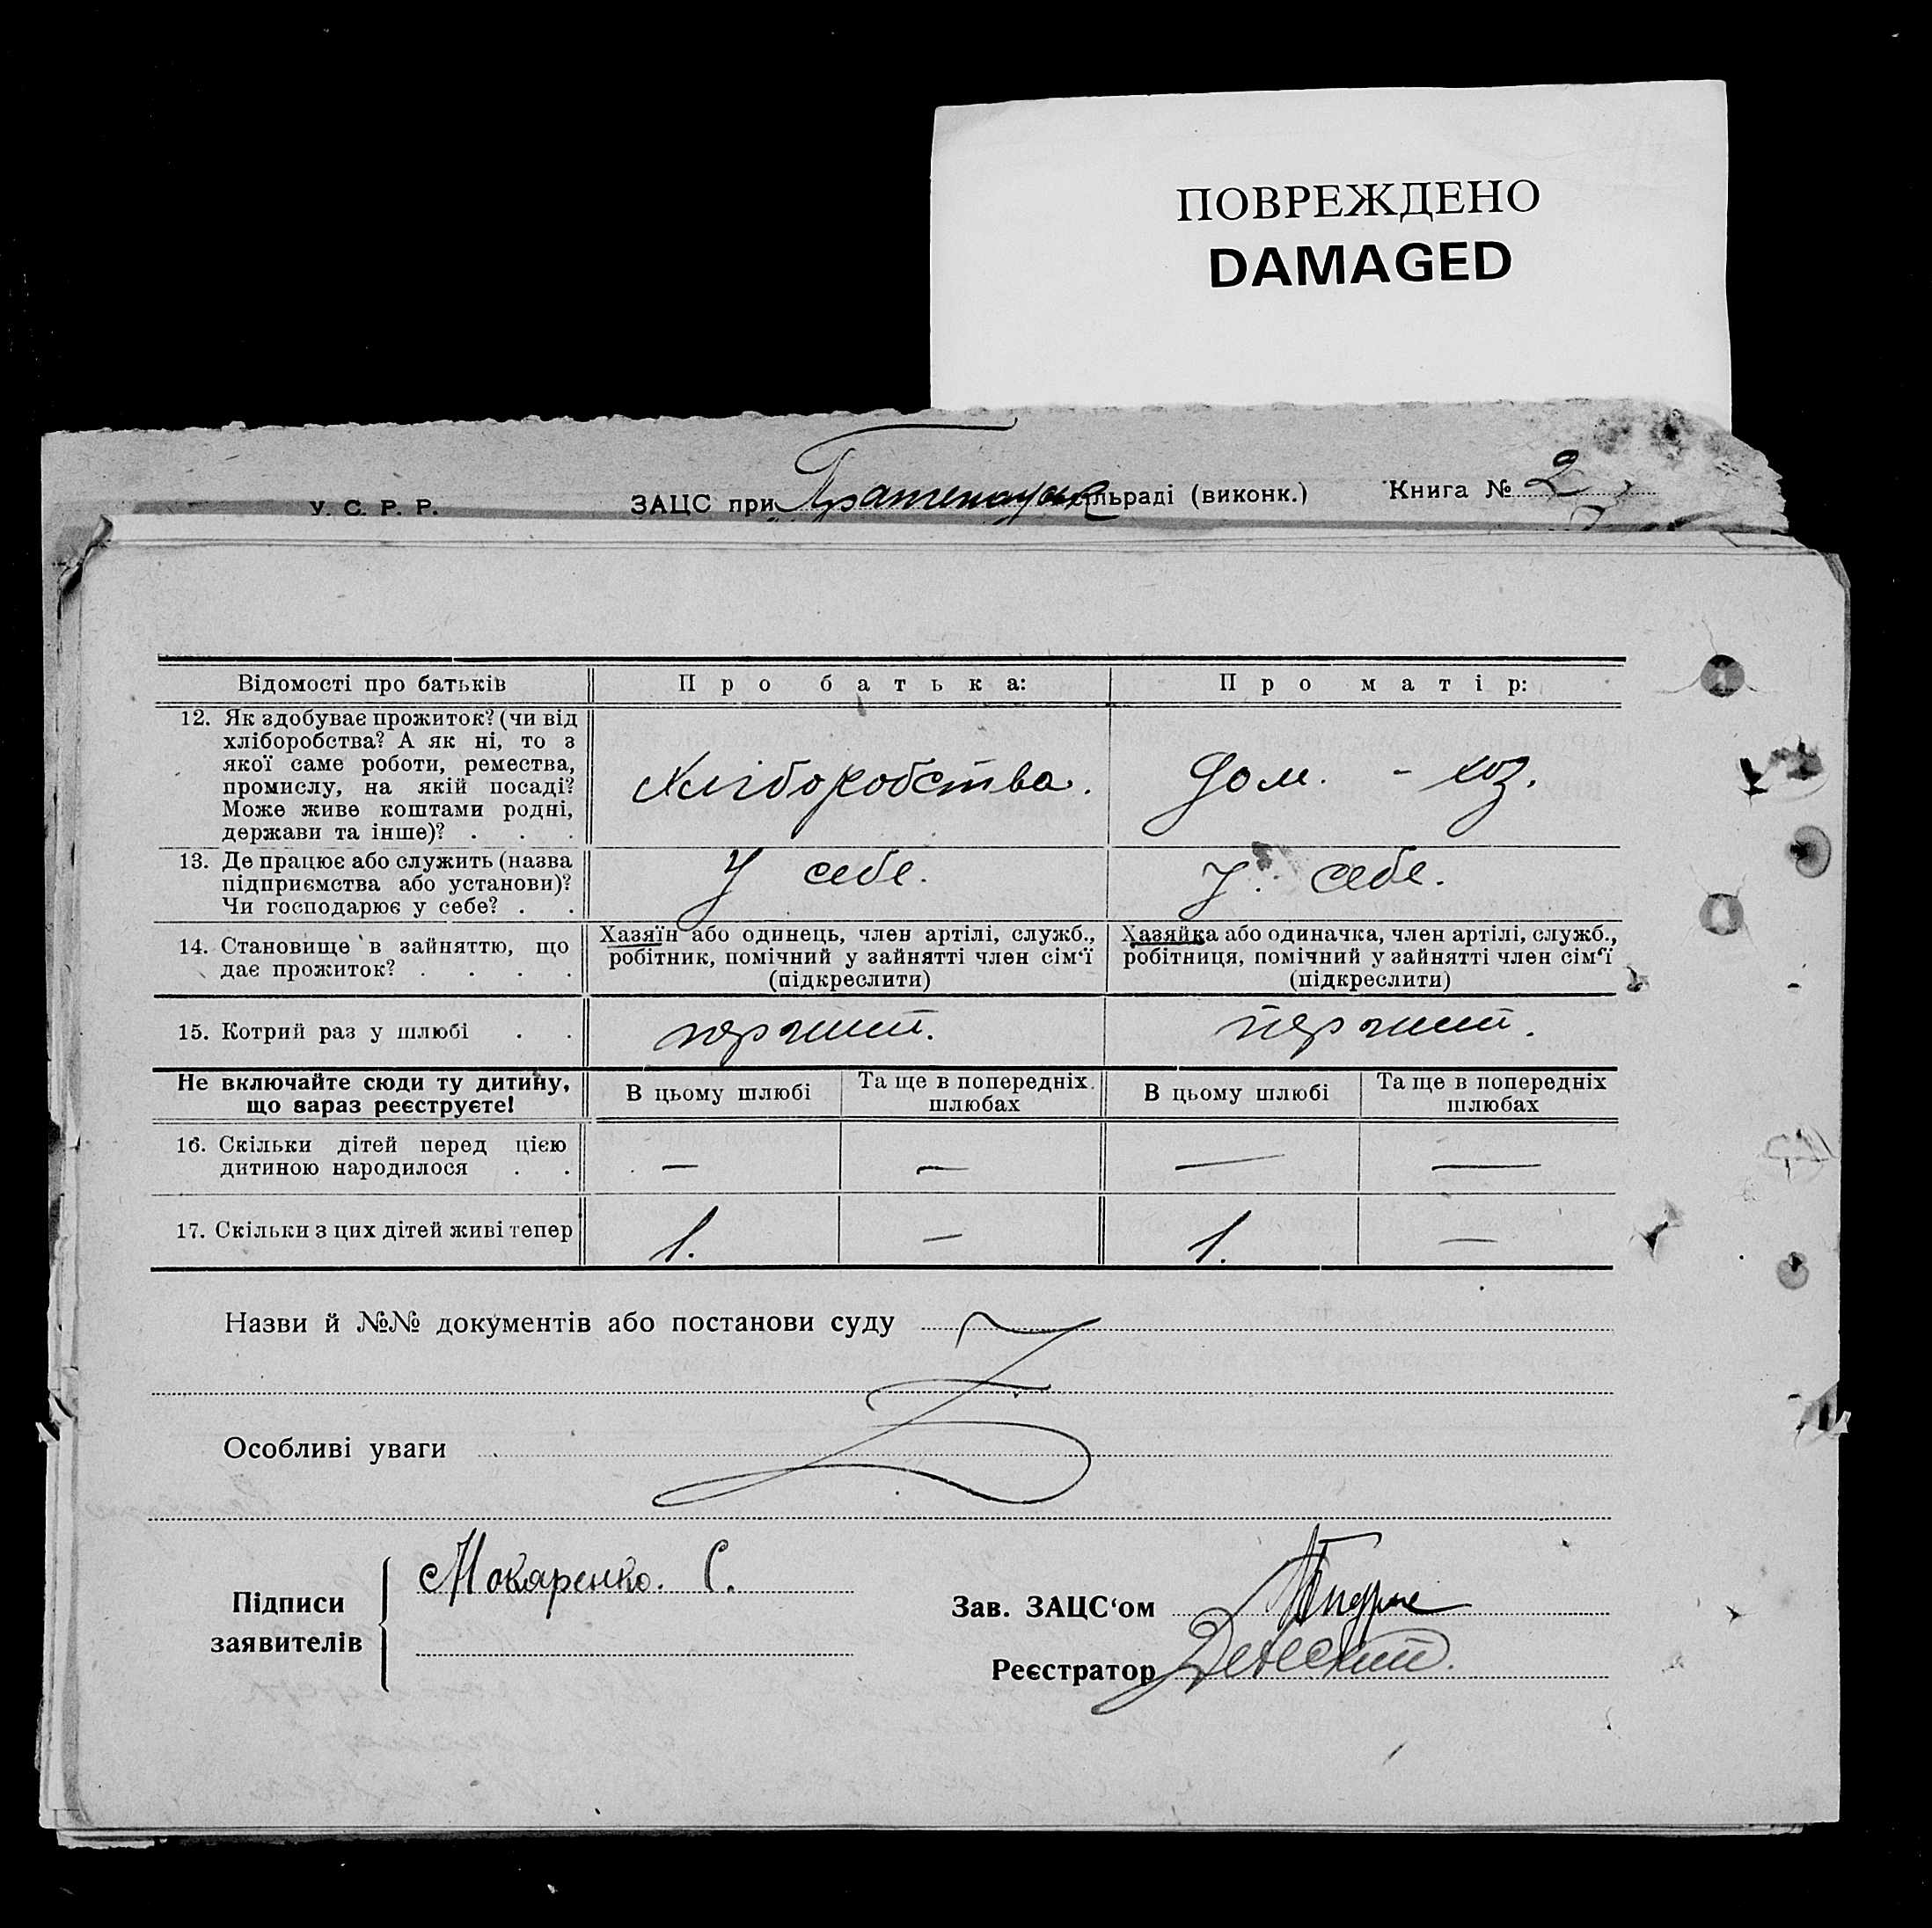 ПОВРЕЖДЕНО
DAMAGED
У. С. Р. Р. ЗАЦС при льраді (виконк.) Книга № 2
Відомості про батьків Про батька: Про матір:
12. Як здобуває прожиток? (чи від
хліборобства? А як ні, то з
якої саме роботи, ремества,
промислу, на якій посаді?
Може живе коштами родні,
держави та інше)? . . .
Хліборобства. Дом. - хоз.
13. Де працює або служить (назва
підприємства або установи)?
Чи господарює у себе? . .
У себе. У себе.
14. Становище в зайняттю, що
дає прожиток? . . . .
Хазяїн або одинець, член артілі, служб.,
робітник, помічний у зайнятті член сім'ї
(підкреслити)
Хазяйка або одиначка, член артілі, служб.,
робітниця, помічний у зайнятті член сім'ї
(підкреслити)
15. Котрий раз у шлюбі . . первший. первший.
Не включайте сюди ту дитину,
що зараз реєструєте!
В цьому шлюбі
Та ще в попередніх
шлюбах
В цьому шлюбі
Та ще в попередніх
шлюбах
16. Скільки дітей перед цією
дитиною народилося . .
— — — —
17. Скільки з цих дітей живі тепер 1. — 1. —
Назви й №№ документів або постанови суду
Особливі уваги
Підписи
заявителів
Макаренко. С.
Зав. ЗАЦС'ом
Реєстратор